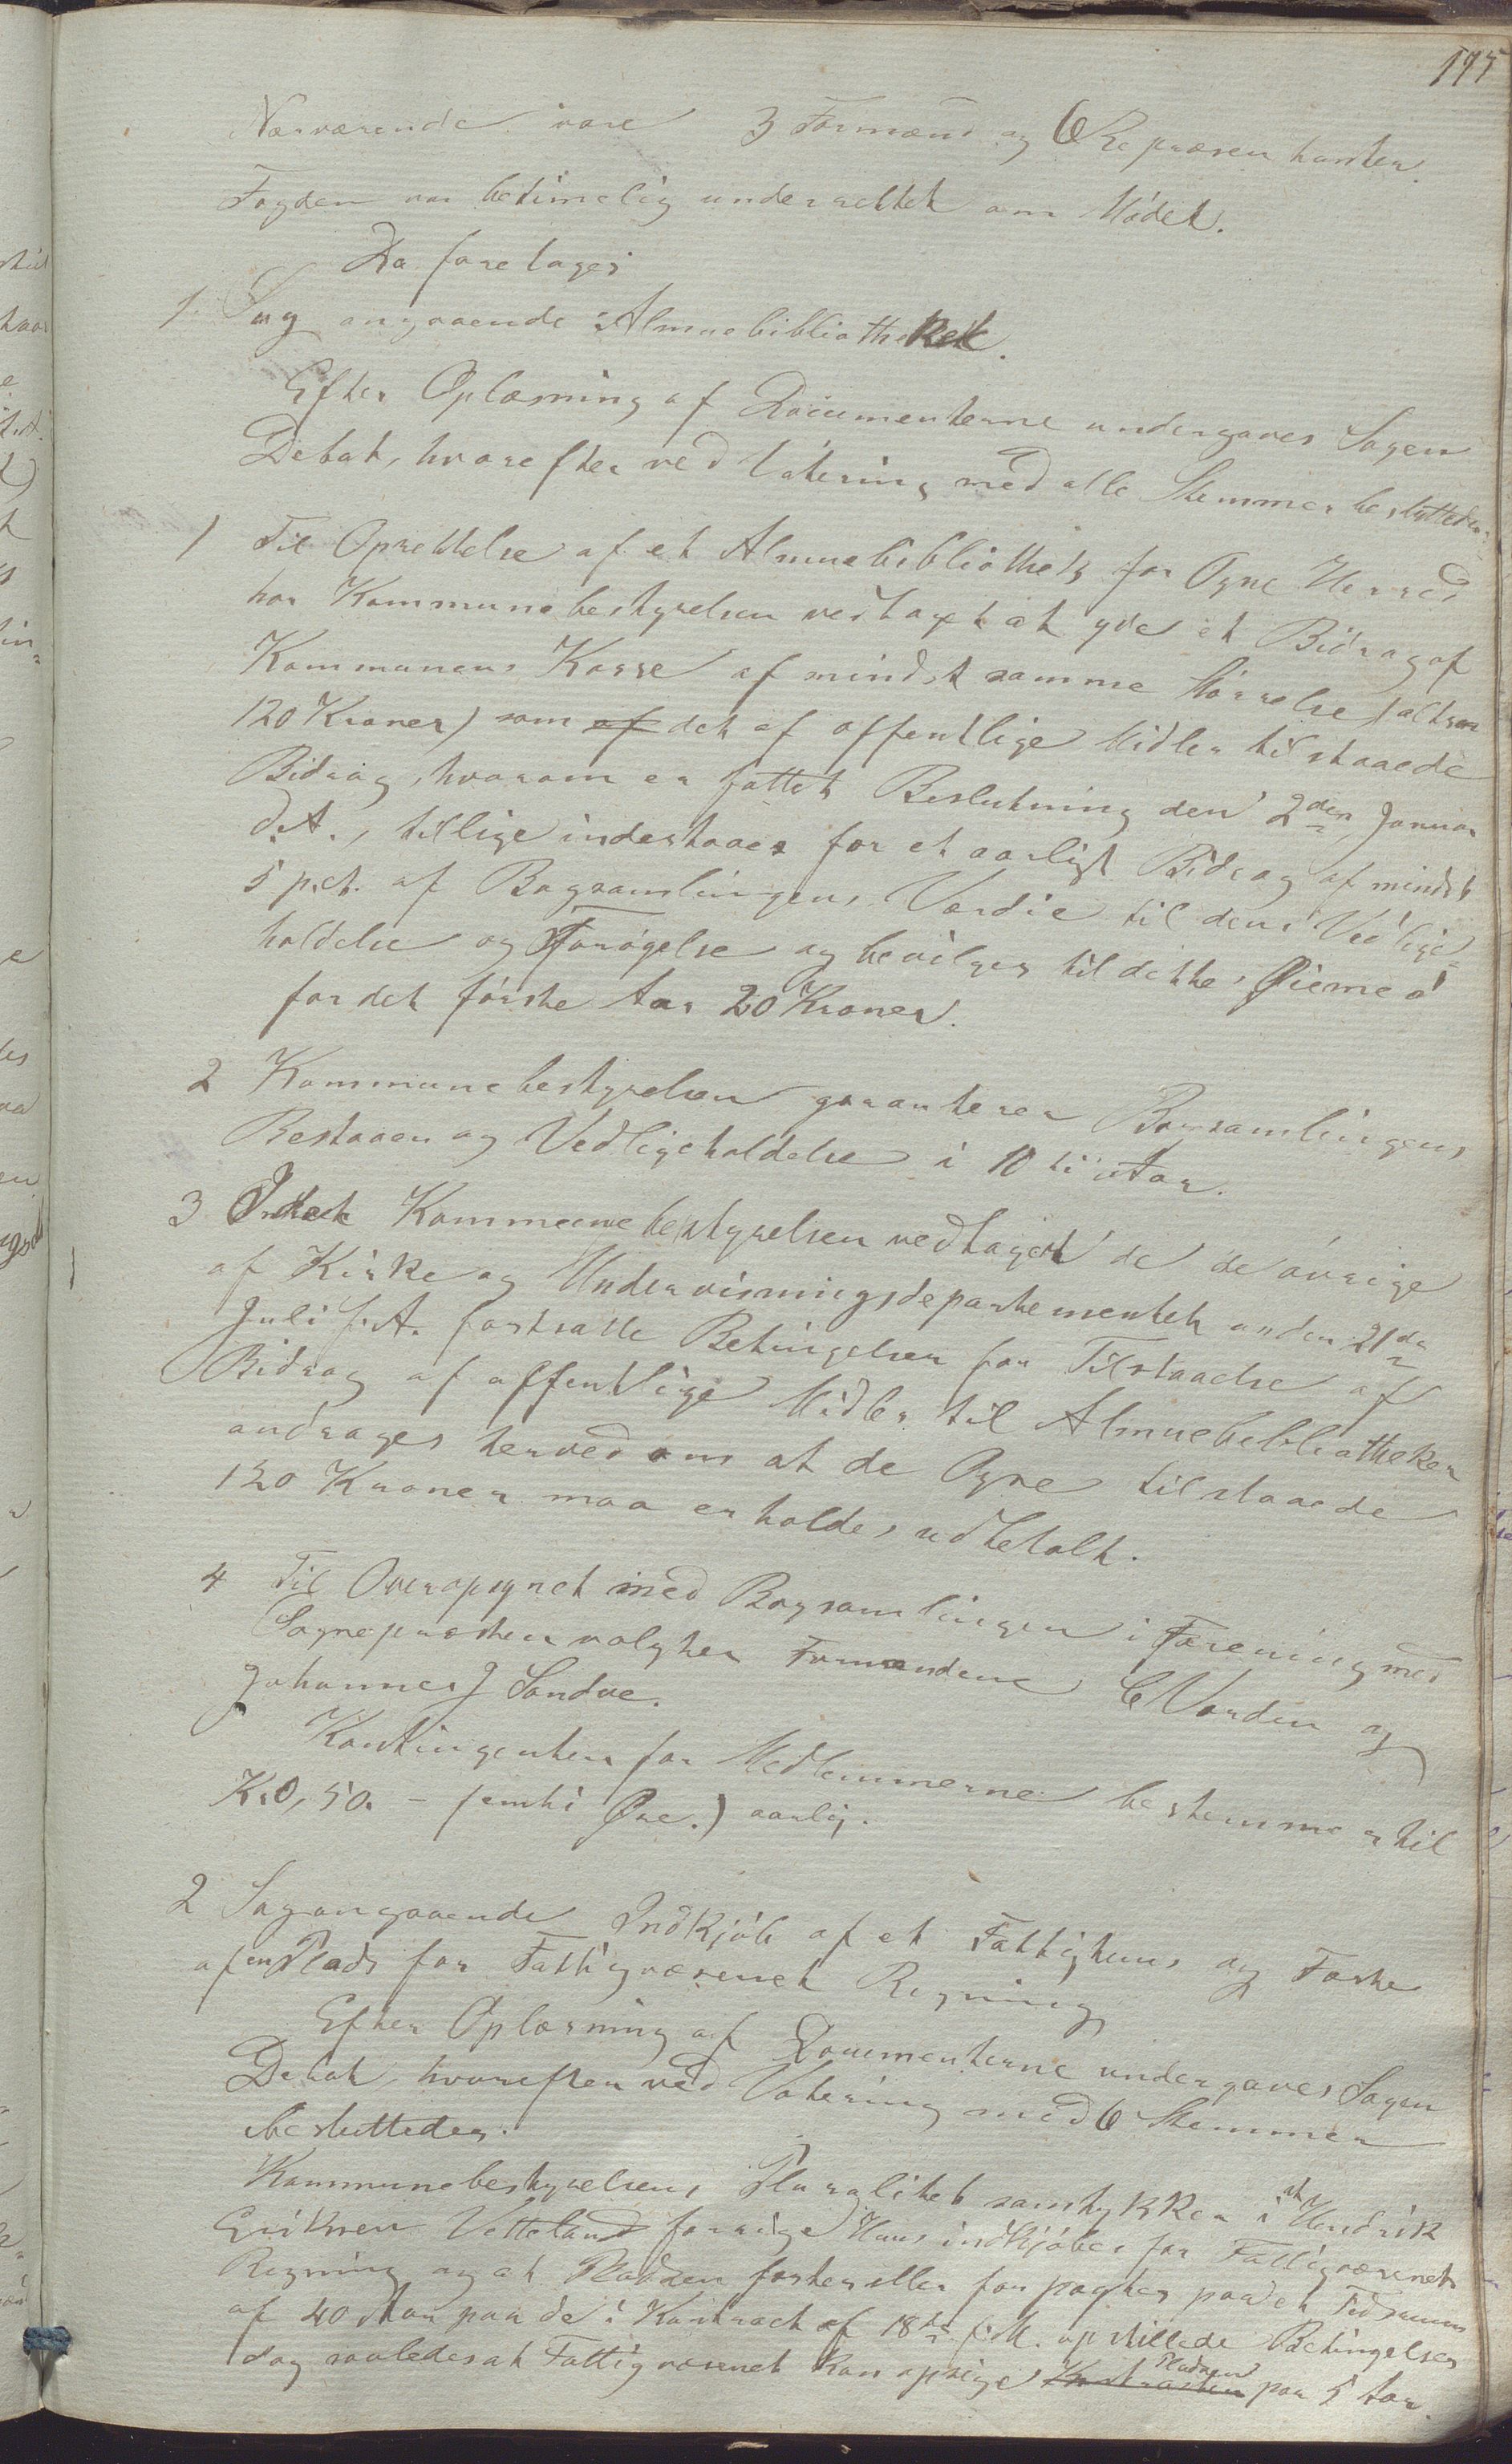 195
Nærværende vare 3 Formænd og 6 Repræsentanter.
Fogden var betimelig underrettet om Mødet.
Da foretages
1. Sag angaaende Almuebibliotheket.
Efter Oplæsning af Documenterne undergaves Sagen
Debat, hvorefter ved Votering med alle Stemmer beslutted[es]:
1 Til Oprettelse af et Almuebibliothek for Ogne Herred
har Kommunebestyrelsen vedtaget at yde et Bidrag af
Kommunens Kasse af mindst samme Størrelse (altsaa
120 Kroner) som af det af offentlige Midler tilstaaede
Bidrag, hvorom er fattet Beslutning den 2den Januar
d. A., tillige indestaaes for et aarligt Bidrag af mindst
5 p.ct. af Bogsamlingens Værdie til dens Vedlige-
holdelse og Forøgelse og bevilges til dette Øiemed
for det første Aar 20 Kroner.
2 Kommunebestyrelsen garanterer Bogsamlingens
Bestaaen og Vedligeholdelse i 10 ti Aar.
3 Idet Kommunebestyrelsen vedtager de de øvrige
af Kirke og Undervisningsdepartementet under 21de
Juli f. A. fortsatte Betingelser for Tilstaaelse af
Bidrag af offentlige Midler til Almuebibliotheker
andrages herved om at de Ogne tilstaaede
120 Kroner maa erholdes udbetalt.
4 Til Overopsynet med Bogsamlingen i Forening med
Sognepræsten valgtes Formændene C Varden og
Johannes J Sandve.
Kontingenten for Medlemmerne bestemmes til
Kr. 0,50. - femti Øre.) aarlig.
2 Sag angaaende Indkjøb af et Fattighuus og Feste
af en Plads for Fattigvæsenet Regning
Efter Oplæsning af Documenterne undergaves Sagen
Debat, hvorefter ved Votering med 6 Stemmer
besluttedes.
Kommunebestyrelsens Pluralitet samtykker i at Hendrik
Eriksen Vetteland forrige Huus indkjøbes for Fattigvæsenets
Regning og at Pladsen fæstes eller forpagtes paa et Tidsrum
af 40 Aar paa de i Kontract af 18de f. M. opstillede Betingelser
dog saaledes at Fattigvæsenet kan opsige Kontracten Pladsen paa 5 Aar.